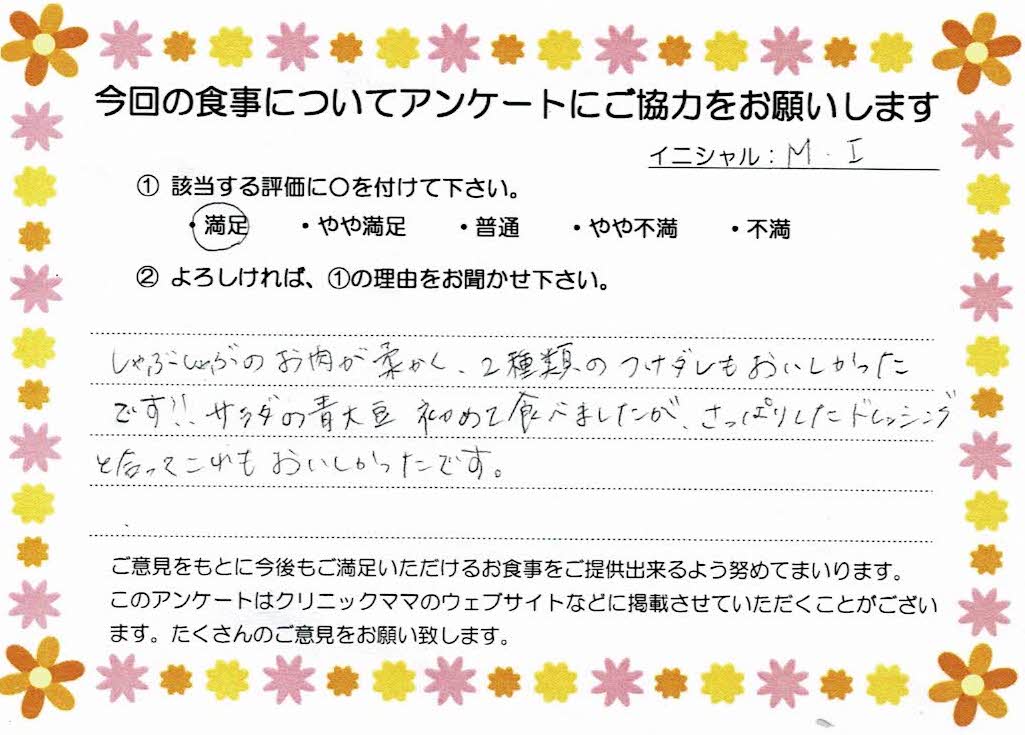 今回の食事についてアンケートにご協力をお願いします
イニシャル：M．I
① 該当する評価に〇を付けて下さい。
・満足 ・やや満足 ・普通 ・やや不満 ・不満
② よろしければ、①の理由をお聞かせ下さい。
しゃぶしゃぶのお肉が柔かく、2種類のつけダレもおいしかった
です!! サラダの青大豆 初めて食べましたが、さっぱりしたドレッシング
と合ってこれもおいしかったです。
ご意見をもとに今後もご満足いただけるお食事をご提供出来るよう努めてまいります。
このアンケートはクリニックママのウェブサイトなどに掲載させていただくことがござい
ます。たくさんのご意見をお願い致します。